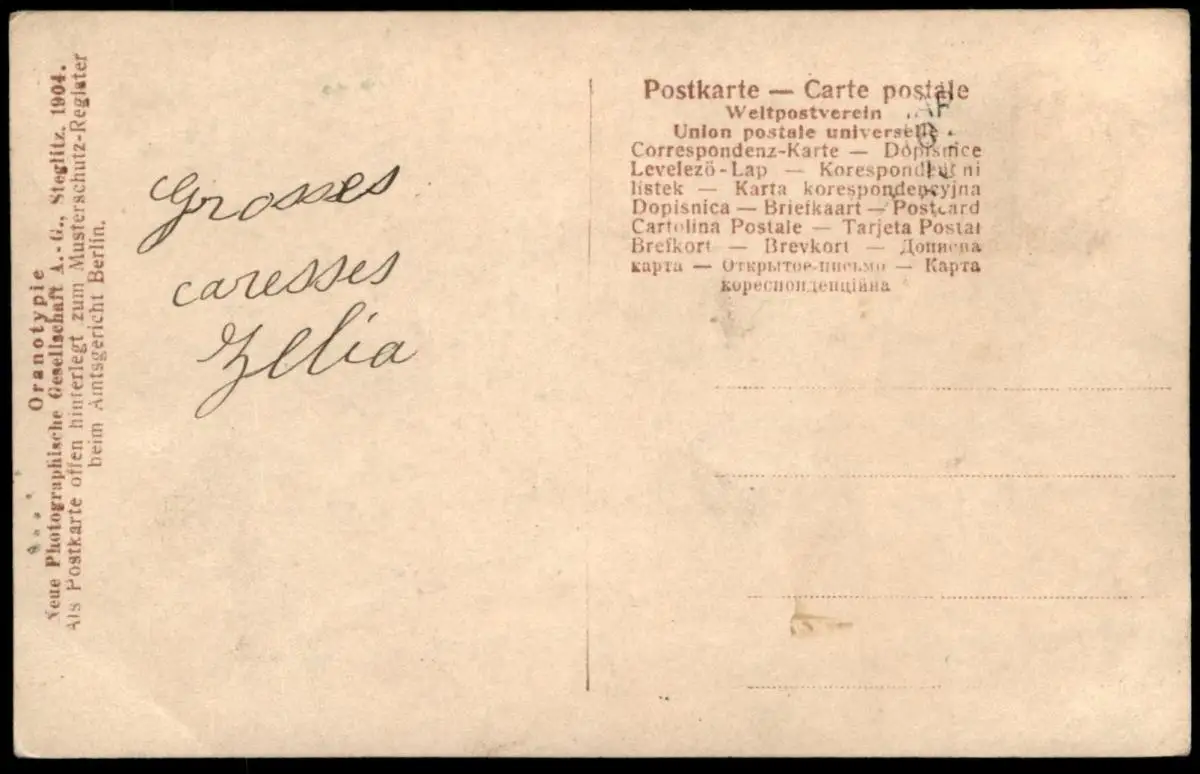 Oranotypie
Neue Photographische Gesellschaft A.-G., Steglitz. 1904.
Als Postkarte offen hinterlegt zum Musterschutz-Register
beim Amtsgericht Berlin.
Grosses
caresses
Zélia
Postkarte — Carte postale
Weltpostverein
Union postale universelle
Correspondenz-Karte — Dopisnice
Levelező-Lap — Korespondenčni
listek — Karta korespondencyjna
Dopisnica — Briefkaart — Postcard
Cartolina Postale — Tarjeta Postal
Brefkort — Brevkort — Дописна
карта — Открытое-письмо — Карта
кореспонденційна